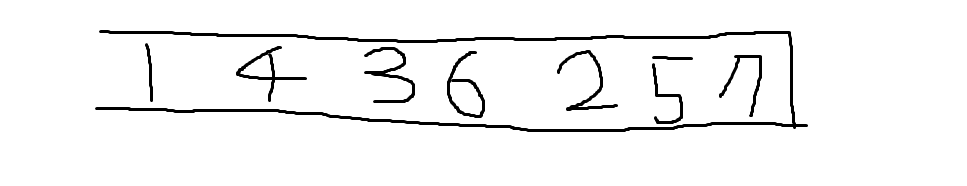 1 4 3 6 2 5 7